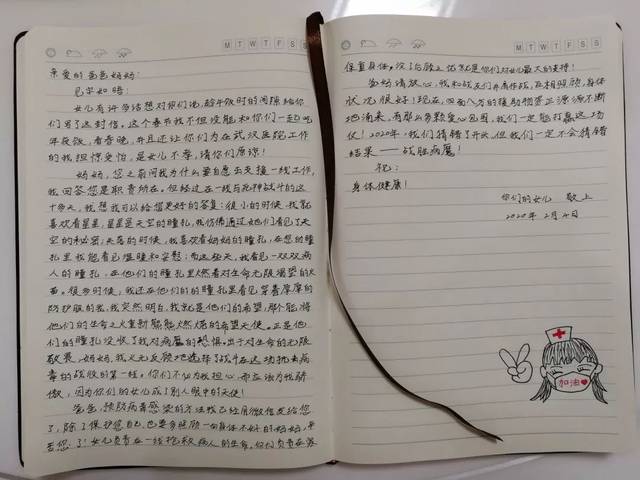 M T W T F S S
亲爱的爸爸妈妈:
见字如晤:
女儿有许多话想对你们说,趁午饭时的间隙给你
们写了这封信。这个春节我不但没能和你们一起吃
年夜饭,看春晚,并且还让你们为在武汉医院工作
的我担惊受怕,是女儿不孝,请你们原谅!
妈妈,您之前问我为什么要自愿去支援一线工作,
我回答您是职责所在。但经过在一线与死神战斗的这
十多天,我想我可以给您更好的答复:很小的时候,我就
喜欢看星星,星星是天空的瞳孔,我仿佛通过她们看见了天
空的秘密;失落的时候,我喜欢看妈妈的瞳孔,在您的瞳
孔里我能看见温暖和安慰;而这些天,我看见一双双病
人的瞳孔,在他们的瞳孔里燃着对生命无限渴望的火
苗。很多时候,我还在他们的瞳孔里看见穿着厚厚的
防护服的我,我突然明白,我就是他们的希望,那个能将
他们的生命之火重新熊熊燃烧的希望天使。正是他
们的瞳孔没收了我对病魔的恐惧,出于对生命的无限
敬畏,妈妈,我义无反顾地选择了战斗在这场抗击病
毒的战役的第一线。你们不必为我担心,而应该为我骄
傲,因为你们的女儿成了别人眼中的天使!
爸爸,预防病毒感染的方法我已经用微信发给您
了,除了保护您自己,也要多照顾一向身体不好的妈妈,辛
苦您了!女儿负责在一线抢救病人的生命,你们负责在家
M T W T F S S
保重身体,没了后顾之忧就是你们对女儿最大的支持!
爸妈请放心,我和战友们并肩作战,互相照顾,身体
状况很好!现在,四面八方的援助物资正源源不断
地涌来,有那么多颗爱心包围,我们一定能打赢这场
仗!2020年,我们猜错了开头,但我们一定不会猜错
结果——战胜病魔!
祝:
身体健康!
你们的女儿 敬上
2020年2月4日
加油